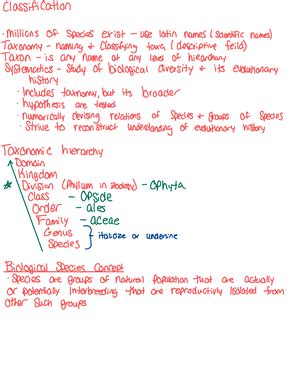 Classification
· Millions of species exist - use latin names (scientific names)
Taxonomy - naming + classifying taxa (descriptive feild)
Taxon - is any name at any level of hierarchy
Systematics - study of biological diversity + its evolutionary
history
· Includes taxonomy, but its broader
· hypothesis are tested
· numarically derising relations of species + groups of species
· Strive to reconstruct understanding of evolutionary history
Taxonomic hierarchy
Domain
Kingdom
Division (Phylum in Zoology) - Ophyta
Class - Opside
Order - ales
Family - aceae
Genus
Species
italicize or underline
Biological Species Concept
· Species are groups of natural population that are actually
or potentially interbreeding that are reproductivly isolated from
other such groups